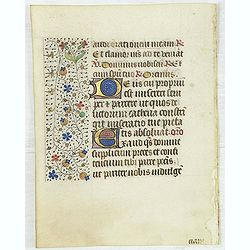 audi orationem meam R
Et clamor meus ad te veniat
Dominus vobiscum R Et
cum spiritu tuo Oremus
Deus cui proprium
est misereri sem
per et parcere ut quos de
lictorum cathena constrin
git miseratio tue pieta
tis absolvat oro
Exaudi qs domine
supplicum preces et confi
tentium tibi parce pctis
ut pariter nobis indulgen